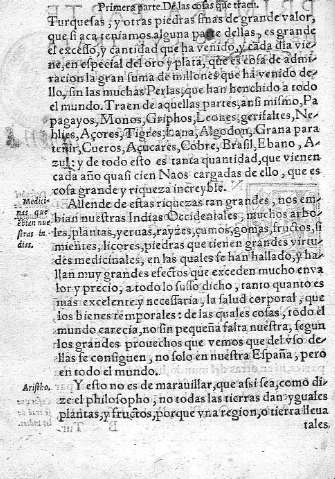 Primera parte De las cosas que traen.
Turquesas, y otras piedras finas de grande valor,
que si aca teniamos alguna parte dellas, es grande
el excesso, y cantidad que ha venido, y cada dia vie-
ne, en especial del oro y plata, que es cosa de admi-
racion la gran suma de millones que ha venido de-
llo, sin las muchas Perlas, que han henchido a todo
el mundo. Traen de aquellas partes, ansi mismo, Pa
pagayos, Monos, Griphos, Leones, gerifaltes, Ne-
blies, Açores, Tigres, Lana, Algodon, Grana para
teñir, Cueros, Açucares, Cobre, Brasil, Ebano, A-
zul: y de todo esto es tanta quantidad, que vienen
cada año quasi cien Naos cargadas de ello, que es
cosa grande y riqueza increyble.
Allende de estas riquezas tan grandes, nos em-
Medici-
bian nuestras Indias Occidentales, muchos arbo-
nas que
les, plantas, yeruas, rayzes, çumos, gomas, fructos, si
ebien nue
mientes, licores, piedras que tienen grandes virtu
stras in
des medicinales, en las quales se han hallado, y ha-
dias.
llan muy grandes efectos que exceden mucho en va
lor y precio, a todo lo susso dicho, tanto quanto es
mas excelente y necessaria, la salud corporal, que
los bienes temporales: de las quales cosas, todo el
mundo carecia, no sin pequeña falta nuestra, segun
los grandes prouechos que vemos que del vso de-
llas se consiguen, no solo en nuestra España, pero
en todo el mundo.
Aristho.
Y esto no es de marauillar, que assi sea, como di
ze el philosopho, no todas las tierras dan yguales
plantas, y fructos, porque vna region, o tierra lleua
B
tales